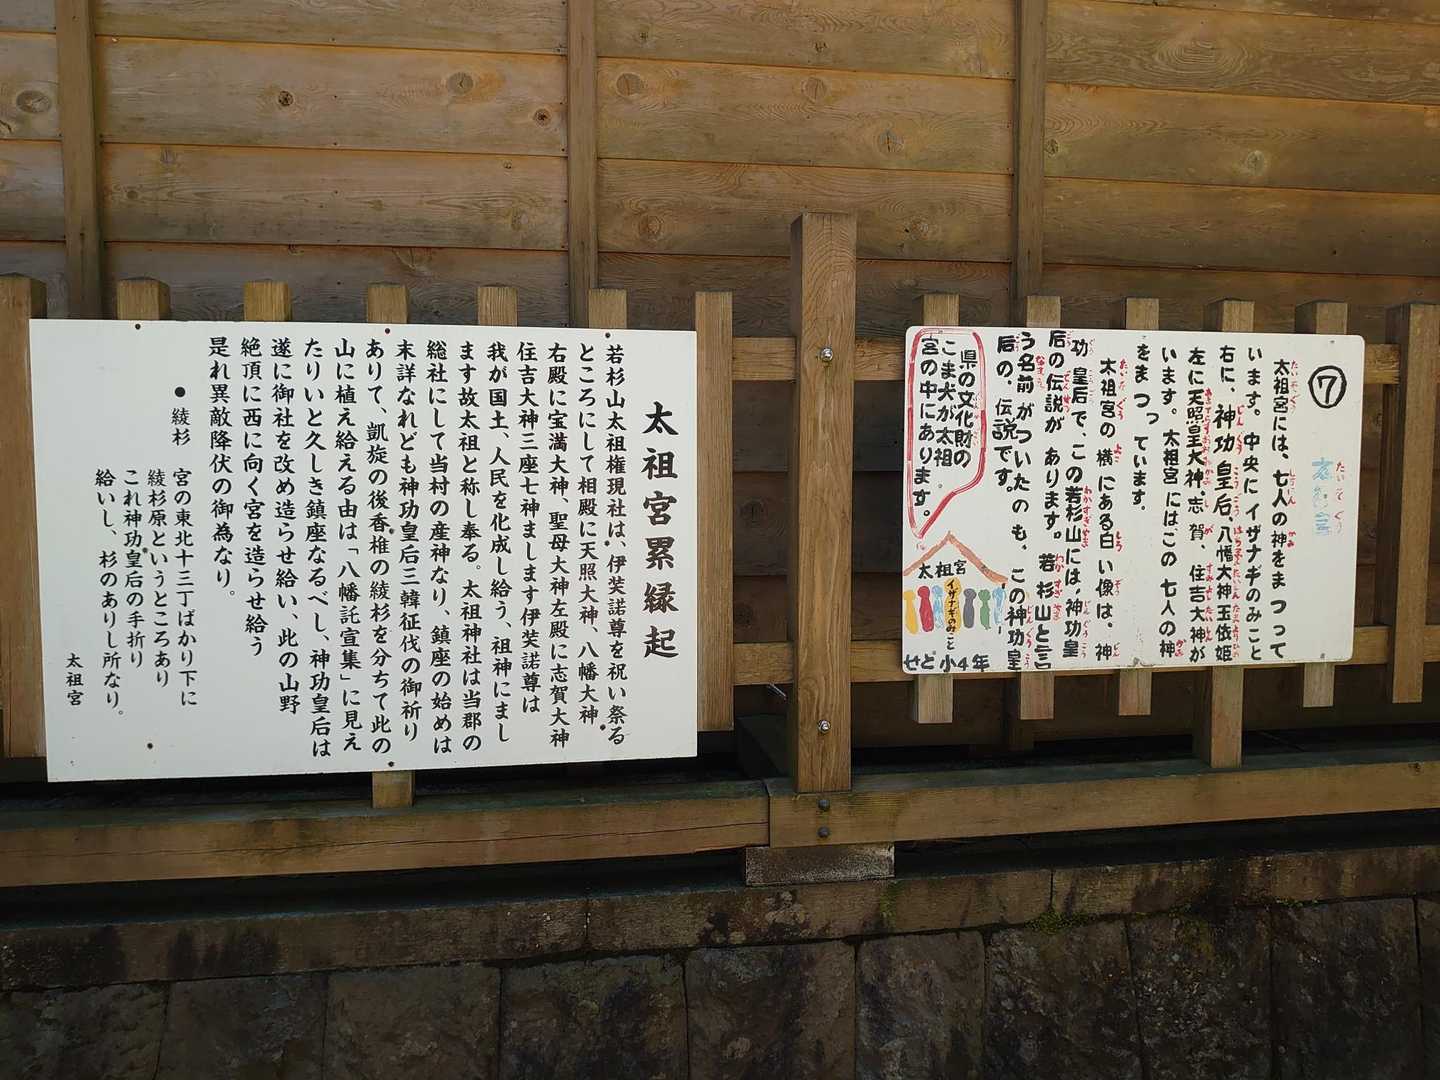 太祖宮累縁起
若杉山太祖権現社は、伊弉諾尊を祝い祭る
ところにして相殿に天照大神、八幡大神
右殿に宝満大神、聖母大神左殿に志賀大神
住吉大神三座七神まします伊弉諾尊は
我が国土、人民を化成し給う、祖神にまし
ます故太祖と称し奉る。太祖神社は当郡の
総社にして当村の産神なり、鎮座の始めは
末詳なれども神功皇后三韓征伐の御祈り
ありて、凱旋の後香椎の綾杉を分ちて此の
山に植え給える由は「八幡託宣集」に見え
たりいと久しき鎮座なるべし、神功皇后は
遂に御社を改め造らせ給い、此の山野
絶頂に西に向く宮を造らせ給う
是れ異敵降伏の御為なり。
●綾杉 宮の東北十三丁ばかり下に
綾杉原というところあり
これ神功皇后の手折り
給いし、杉のありし所なり。
太祖宮
⑦
太祖宮には、七人の神をまつって
います。中央にイザナギのみこと
右に、神功皇后、八幡大神玉依姫
左に天照皇大神、志賀、住吉大神が
います。太祖宮にはこの七人の神
をまつっています。
太祖宮の横にある白い像は、神
功皇后で、この若杉山には、神功皇
后の伝説があります。若杉山と言
う名前がついたのも、この神功皇
后の、伝説です。
県の文化財の
こま犬が太祖
宮の中にあります。
太祖宮
イザナギのみこと
せど小4年